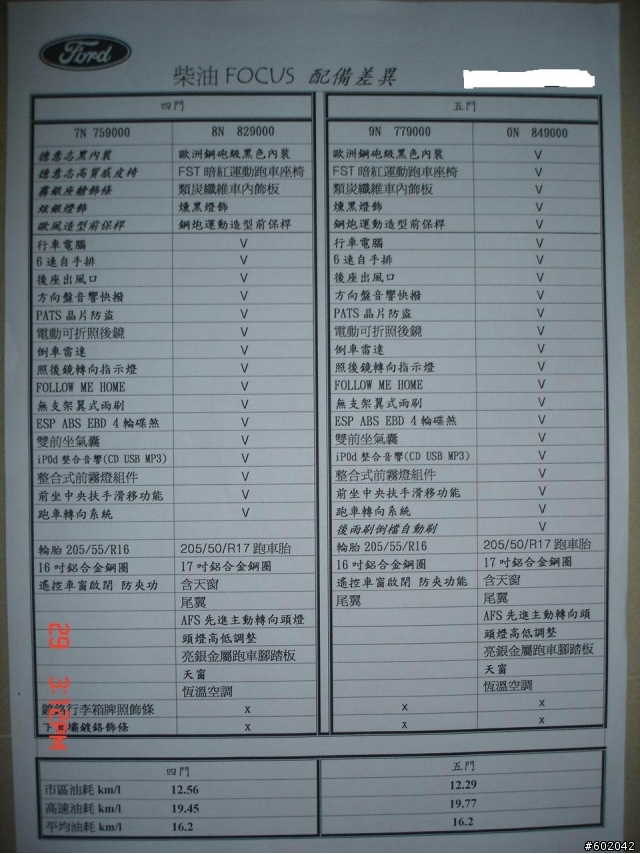 Ford
柴油 FOCUS 配備差異
四門 五門
7N 759000 8N 829000 9N 779000 0N 849000
德意志黑內裝 歐洲鋼砲級黑色內裝 歐洲鋼砲級黑色內裝 V
德意志高質感皮椅 FST暗紅運動跑車座椅 FST暗紅運動跑車座椅 V
霧銀座艙飾條 類炭纖維車內飾板 類炭纖維車內飾板 V
炫銀燈飾 燻黑燈飾 燻黑燈飾 V
歐風造型前保桿 鋼炮運動造型前保桿 鋼炮運動造型前保桿 V
行車電腦 V 行車電腦 V
6速自手排 V 6速自手排 V
後座出風口 V 後座出風口 V
方向盤音響快撥 V 方向盤音響快撥 V
PATS晶片防盜 V PATS晶片防盜 V
電動可折照後鏡 V 電動可折照後鏡 V
倒車雷達 V 倒車雷達 V
照後鏡轉向指示燈 V 照後鏡轉向指示燈 V
FOLLOW ME HOME V FOLLOW ME HOME V
無支架翼式雨刷 V 無支架翼式雨刷 V
ESP ABS EBD 4輪碟煞 V ESP ABS EBD 4輪碟煞 V
雙前坐氣囊 V 雙前坐氣囊 V
iP0d整合音響(CD USB MP3) V iP0d整合音響(CD USB MP3) V
整合式前霧燈組件 V 整合式前霧燈組件 V
前坐中央扶手滑移功能 V 前坐中央扶手滑移功能 V
跑車轉向系統 V 跑車轉向系統 V
後雨刷倒檔自動刷 V
輪胎205/55/R16 205/50/R17跑車胎 輪胎205/55/R16 205/50/R17跑車胎
16吋鋁合金鋼圈 17吋鋁合金鋼圈 16吋鋁合金鋼圈 17吋鋁合金鋼圈
遙控車窗啟閉 防夾功 含天窗 遙控車窗啟閉 防夾功能 含天窗
尾翼 尾翼 尾翼
AFS先進主動轉向頭燈 AFS先進主動轉向頭
頭燈高低調整 頭燈高低調整
亮銀金屬跑車腳踏板 亮銀金屬跑車腳踏板
天窗 天窗
恆溫空調 恆溫空調
鍍鉻行李箱牌照飾條 x x x
下 壩鍍鉻飾條 x x x
四門 五門
市區油耗 km/l 12.56 12.29
高速油耗 km/l 19.45 19.77
平均油耗 km/l 16.2 16.2
#602042